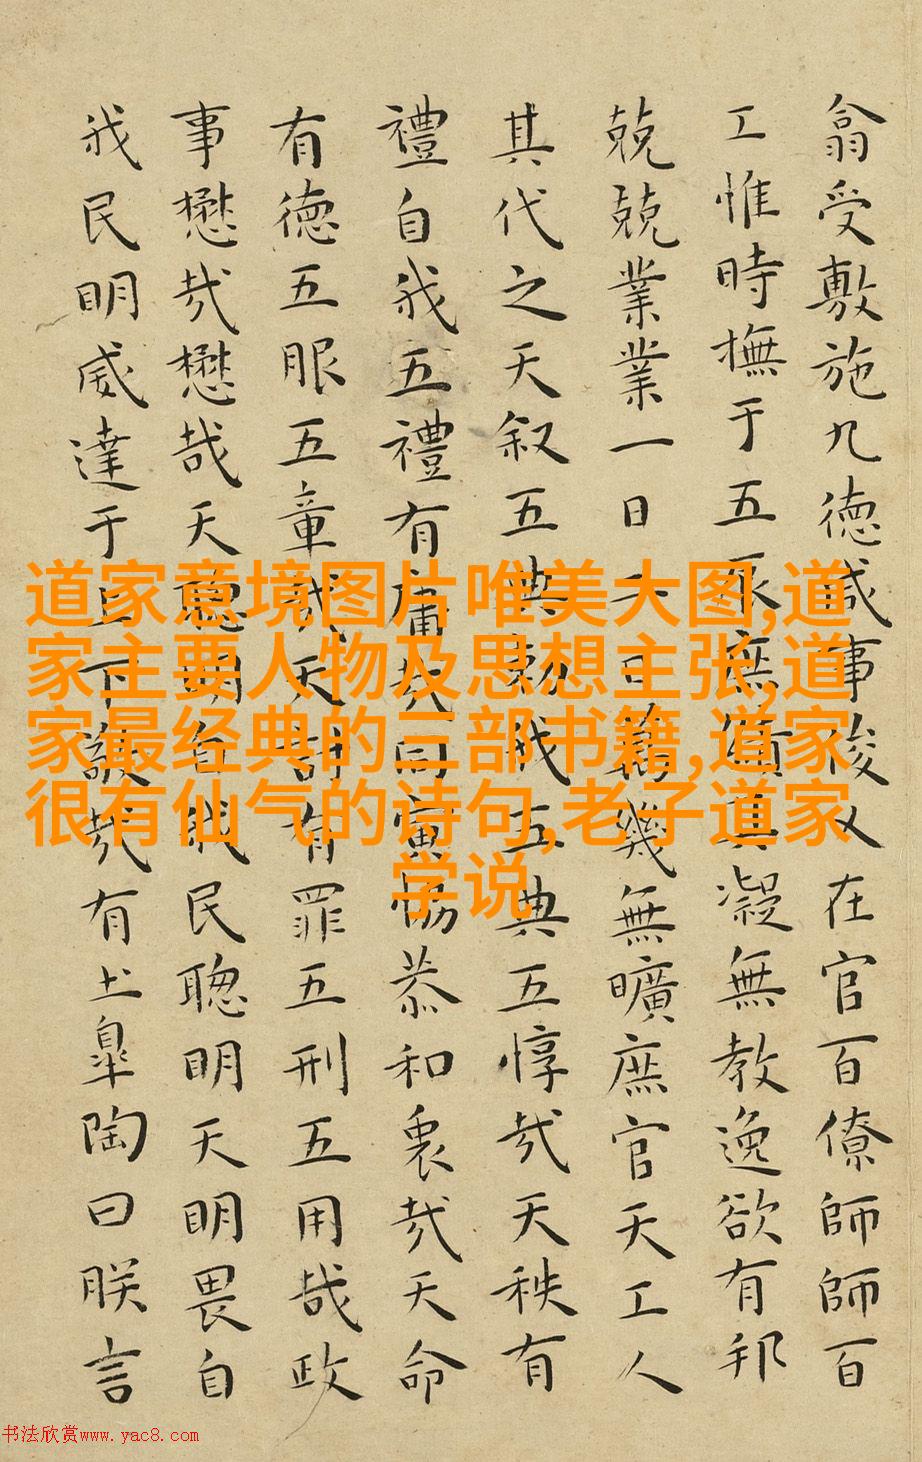 翕受敷施九徳咸事俊乂在官百僚師師百
工惟時撫于五辰庶績其凝無教逸欲有邦
兢兢業業一日二日萬幾無曠庶官天工人
其代之天叙五典勅我五典五惇哉天秩有
禮自我五禮有庸哉同寅恊恭和衷哉天命
有徳五服五章哉天討有罪五刑五用哉政
事懋哉懋哉天聰明自我民聦明天明畏自
我民明威達于上下敬哉有土皐陶曰朕言
道家意境图片唯美大图,道
家主要人物及思想主张,道
家最经典的三部书籍,道家
很有仙气的诗句,老子道家
学说
书法欣赏www.yac8.com